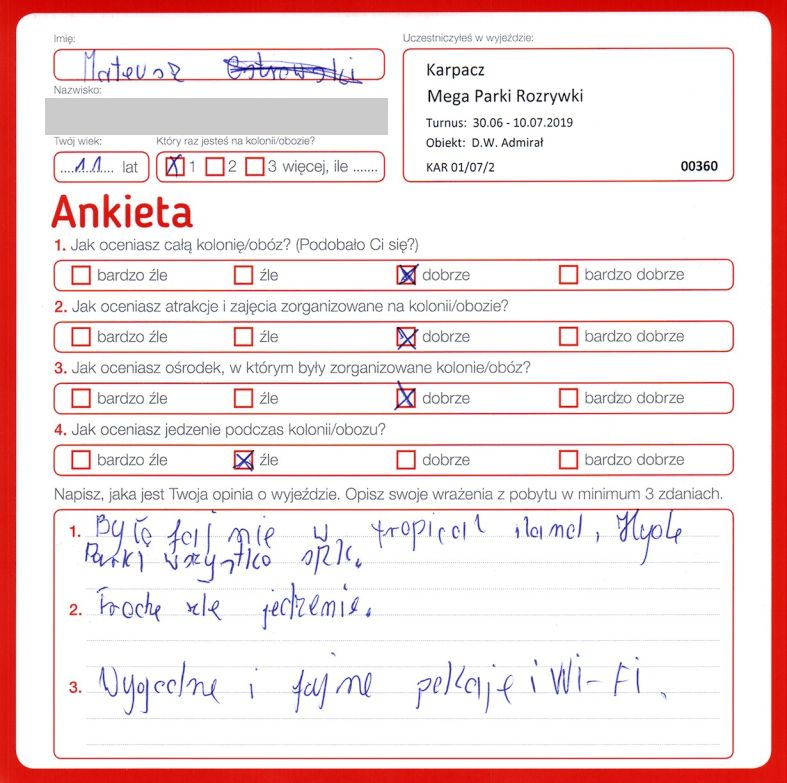 Imię:
Mateusz
Uczestniczyłeś w wyjeździe:
Karpacz
Mega Parki Rozrywki
Turnus: 30.06 - 10.07.2019
Obiekt: D.W. Admirał
KAR 01/07/2
00360
Nazwisko:
Twój wiek:
....11.... lat
Który raz jesteś na kolonii/obozie?
X 1 2 3 więcej, ile .......
Ankieta
1. Jak oceniasz całą kolonię/obóz? (Podobało Ci się?)
bardzo źle źle X dobrze bardzo dobrze
2. Jak oceniasz atrakcje i zajęcia zorganizowane na kolonii/obozie?
bardzo źle źle X dobrze bardzo dobrze
3. Jak oceniasz ośrodek, w którym były zorganizowane kolonie/obóz?
bardzo źle źle X dobrze bardzo dobrze
4. Jak oceniasz jedzenie podczas kolonii/obozu?
bardzo źle X źle dobrze bardzo dobrze
Napisz, jaka jest Twoja opinia o wyjeździe. Opisz swoje wrażenia z pobytu w minimum 3 zdaniach.
1. Było fajnie w tropical
Parki wszystko
2. Troche złe jedzenie.
3. Wygodne i fajne pokaje i Wi-Fi.